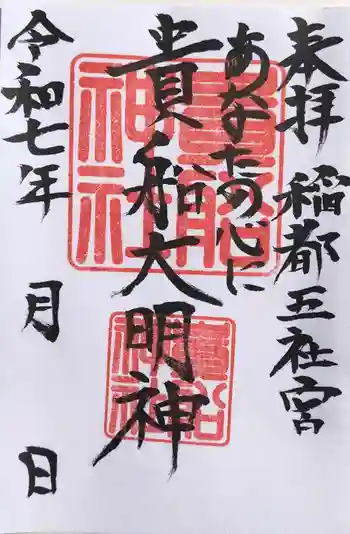 奉拝 稲都五社宮
あなたの心に
貴船大明神
令和七年 月 日
貴船神社
貴船神社